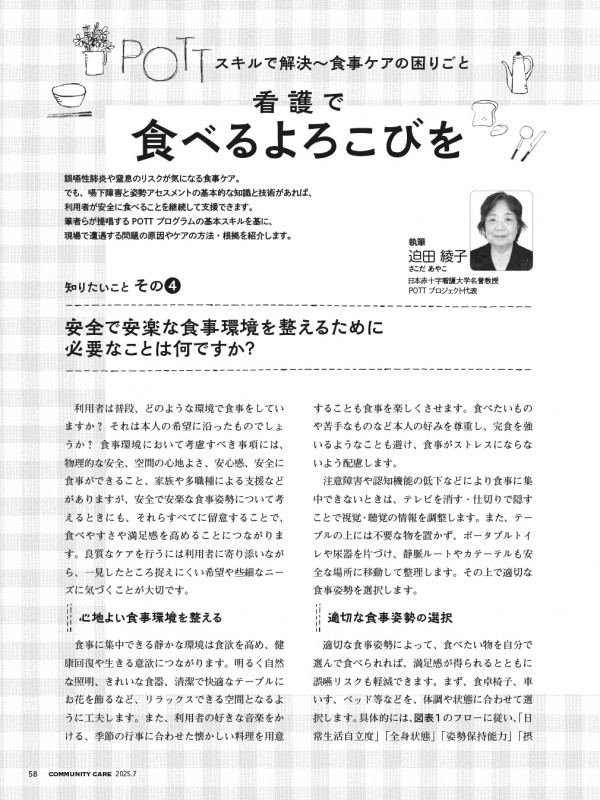 POTT スキルで解決〜食事ケアの困りごと
看護で
食べるよろこびを
誤嚥性肺炎や窒息のリスクが気になる食事ケア。
でも、嚥下障害と姿勢アセスメントの基本的な知識と技術があれば、
利用者が安全に食べることを継続して支援できます。
筆者らが提唱する POTT プログラムの基本スキルを基に、
現場で遭遇する問題の原因やケアの方法・根拠を紹介します。
執筆
迫田 綾子
さこだ あやこ
日本赤十字看護大学名誉教授
POTT プロジェクト代表
知りたいこと その❹
安全で安楽な食事環境を整えるために
必要なことは何ですか?
利用者は普段、どのような環境で食事をしてい
ますか? それは本人の希望に沿ったものでしょ
うか? 食事環境において考慮すべき事項には、
物理的な安全、空間の心地よさ、安心感、安全に
食事ができること、家族や多職種による支援など
がありますが、安全で安楽な食事姿勢について考
えるときにも、それらすべてに留意することで、
食べやすさや満足感を高めることにつながりま
す。良質なケアを行うには利用者に寄り添いなが
ら、一見したところ捉えにくい希望や些細なニー
ズに気づくことが大切です。
心地よい食事環境を整える
食事に集中できる静かな環境は食欲を高め、健
康回復や生きる意欲につながります。明るく自然
な照明、きれいな食器、清潔で快適なテーブルに
お花を飾るなど、リラックスできる空間となるよ
うに工夫します。また、利用者の好きな音楽をか
ける、季節の行事に合わせた懐かしい料理を用意
することも食事を楽しくさせます。食べたいもの
や苦手なものなど本人の好みを尊重し、完食を強
いるようなことも避け、食事がストレスにならな
いよう配慮します。
注意障害や認知機能の低下などにより食事に集
中できないときは、テレビを消す・仕切りで隠す
ことで視覚・聴覚の情報を調整します。また、テー
ブルの上には不要な物を置かず、ポータブルトイ
レや尿器を片づけ、静脈ルートやカテーテルも安
全な場所に移動して整理します。その上で適切な
食事姿勢を選択します。
適切な食事姿勢の選択
適切な食事姿勢によって、食べたい物を自分で
選んで食べられれば、満足感が得られるとともに
誤嚥リスクも軽減できます。まず、食卓椅子、車
いす、ベッド等などを、体調や状態に合わせて選
択します。具体的には、図表1のフローに従い、「日
常生活自立度」「全身状態」「姿勢保持能力」「摂
58 COMMUNITY CARE 2025.7